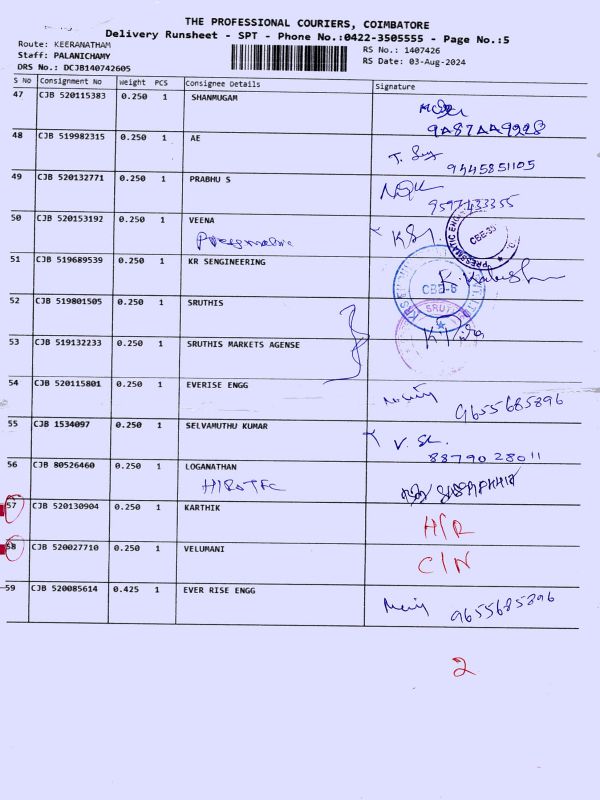 THE PROFESSIONAL COURIERS, COIMBATORE
Delivery Runsheet - SPT - Phone No.:0422-3505555 - Page No.:5
Route: KEERANATHAM
Staff: PALANICHAMY
DRS No.: DCJB140742605
RS No.: 1407426
RS Date: 03-Aug-2024
S No Consignment No Weight PCS Consignee Details Signature
47 CJB 520115383 0.250 1 SHANMUGAM
48 CJB 519982315 0.250 1 AE
9445851105
49 CJB 520132771 0.250 1 PRABHU S
9597433355
50 CJB 520153192 0.250 1 VEENA
CBE-35
51 CJB 519689539 0.250 1 KR SENGINEERING
CBE-6
52 CJB 519801505 0.250 1 SRUTHIS
53 CJB 519132233 0.250 1 SRUTHIS MARKETS AGENSE
54 CJB 520115801 0.250 1 EVERISE ENGG
9655685896
55 CJB 1534097 0.250 1 SELVAMUTHU KUMAR
8879028011
56 CJB 80526460 0.250 1 LOGANATHAN
57 CJB 520130904 0.250 1 KARTHIK
H/R
58 CJB 520027710 0.250 1 VELUMANI
C/N
59 CJB 520085614 0.425 1 EVER RISE ENGG
9655685896
2